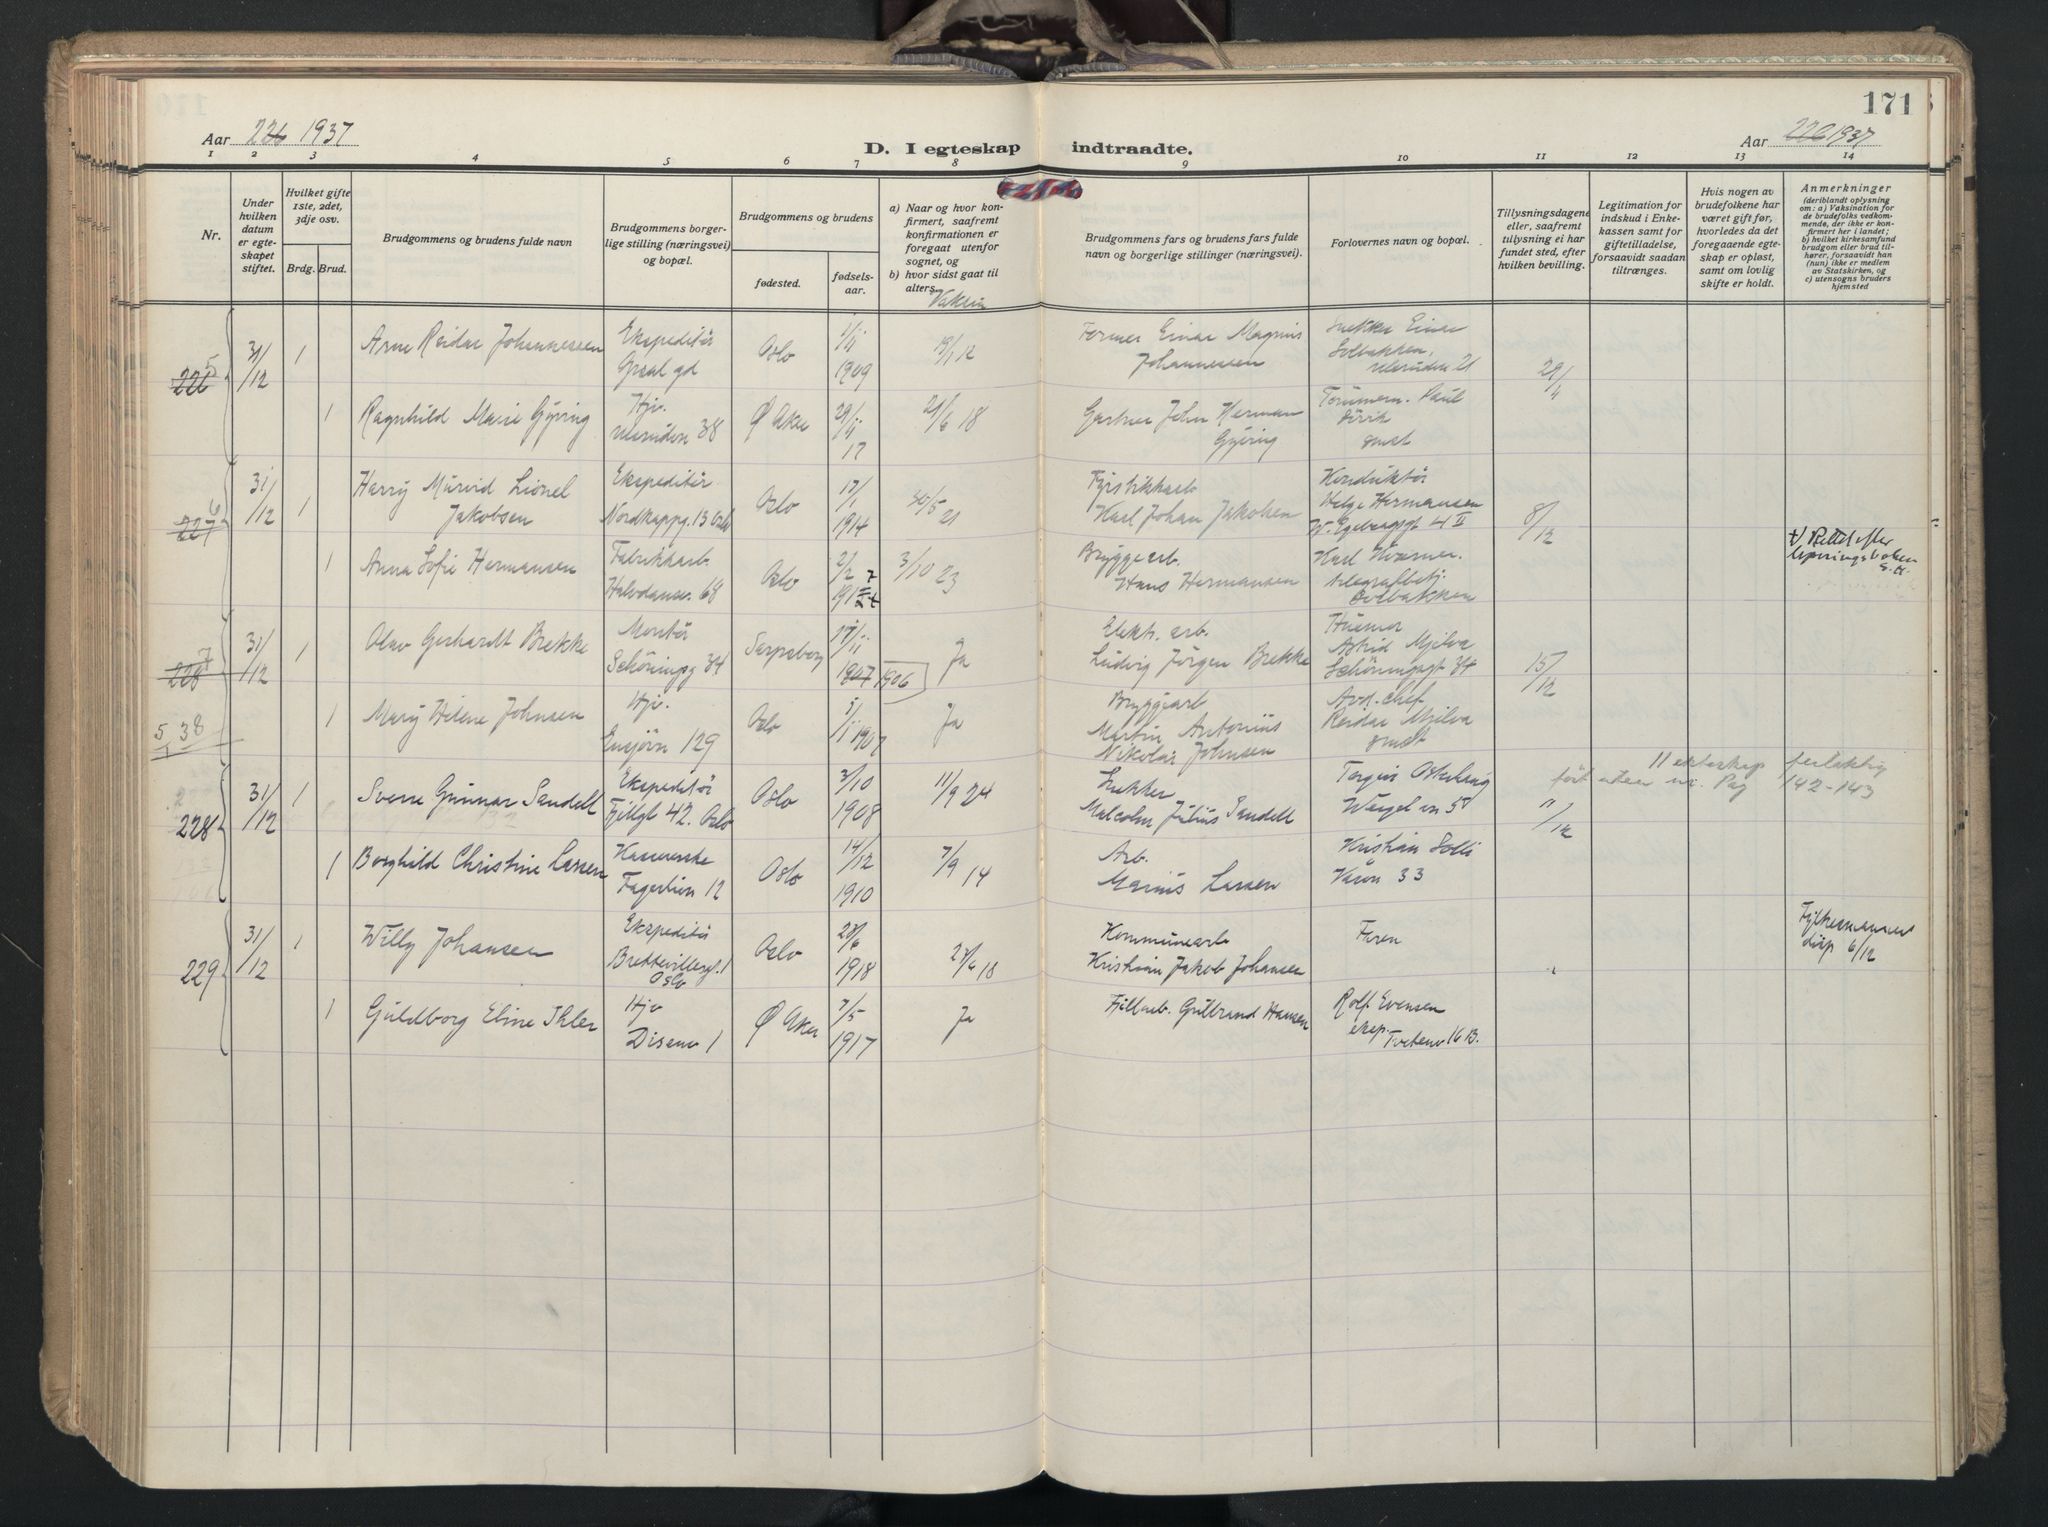 171
Aar 226 1937
D. I egteskap indtraadte.
Aar 226 1937
1 2 3 4 5 6 7 8 9 10 11 12 13 14
Nr.
Under hvilken datum er egteskapet stiftet.
Hvilket gifte 1ste, 2det, 3dje osv.
Brdg. Brud.
Brudgommens og brudens fulde navn
Brudgommens borgerlige stilling (næringsvei) og bopæl.
Brudgommens og brudens
fødested.
fødselsaar.
a) Naar og hvor konfirmert, saafremt konfirmationen er foregaat utenfor sognet, og
b) hvor sidst gaat til alters.
Brudgommens fars og brudens fars fulde navn og borgerlige stillinger (næringsvei).
Forlovernes navn og bopæl.
Tillysningsdagene eller, saafremt tillysning ei har fundet sted, efter hvilken bevilling.
Legitimation for indskud i Enkekassen samt for giftetilladelse, forsaavidt saadan tiltrænges.
Hvis nogen av brudefolkene har været gift før, hvorledes da det foregaaende egteskap er opløst, samt om lovlig skifte er holdt.
Anmerkninger
(deriblandt oplysning om: a) Vaksination for de brudefolks vedkommende, der ikke er konfirmert her i landet;
b) hvilket kirkesamfund brudgom eller brud tilhører, forsaavidt han (hun) ikke er medlem av Statskirken, og
c) utensogns bruders hjemsted
Vaksin
226 5 31/12 1 Arne Reidar Johannessen Ekspeditør Oslo 1/4 1909 19/1 12 Former Einar Magnus Johannessen Snekker Einar Solbakken, Ulsruden 21 29/4
1 Ragnhild Marie Gjøring Hjv. Ulsruden 38 Ø Aker 29/4 17 21/6 18 Gartner John Herman Gjøring Paul smst
227 6 31/12 1 Harry Murvid Lionel Jakobsen Ekspeditør Nordkappg. 13 Oslo Oslo 17/1 1914 20/5 21 Fyrstikkarb. Karl Johan Jakobsen Konduktør Helge Hermansen W. Egebergsgt 4 II 8/12
1 Anna Sofie Hermansen Fabrikkarb Halvdansv. 68 Oslo 2/2 3/10 23 Bryggearb. Hans Hermansen Karl Solbakken
Rettet efter
228 7 31/12 1 Olav Gerhardt Brekke Montør Schöningsg 34 Sarpsborg 1907 1906 Ja Elektr. arb. Ludvig Jørgen Brekke Husmor Astrid Mjelva Schöningsgt 34 15/12
5 38
1 Mary Helene Johnsen Hjv. Ensjøvn 129 Oslo 1/1 1907 Ja Bryggearb Martin Antonius Nikolai Johnsen Avd. chef Reidar Mjelva smst
11 ekteskap
ført uten nr. Pag 142-143
228 31/12 1 Sverre Gunnar Sandell Ekspeditør Fjellgt 42. Oslo Oslo 3/10 1908 11/9 24 Snekker Malcolm Julius Sandell 11/12
1 Borghild Christine Larsen Kassererske Fagerlien 12 Oslo 14/12 1910 7/9 14 Arb. Marius Larsen Kristian Solli 33
229 31/12 1 Willy Johansen Ekspeditør Brettevillesgt. 1 Oslo Oslo 28/6 1918 27/6 18 Kommunearb Kristian Jakob Johansen Faren
disp 6/12
1 Guldborg Eline Ihler Hjv Disenv 1 Ø Aker 7/5 1917 Ja Gulbrand Hansen Rolf Evensen eksp. Tvetenv 16 B.